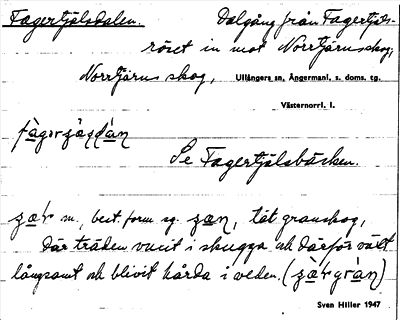 Fagertjälsdalen. Dalgång från Fagertjäls-
röset in mot Norrtjärns skog,
Norrtjärns skog, Ullångers sn, Ångermanl. s. doms. tg.
Västernorrl. l.
Se Fagertjälsbäcken.
m., best. form sg. tät granskog,
där träden vuxit i skugga och därför växt
långsamt och blivit hårda i veden.
Sven Hiller 1947